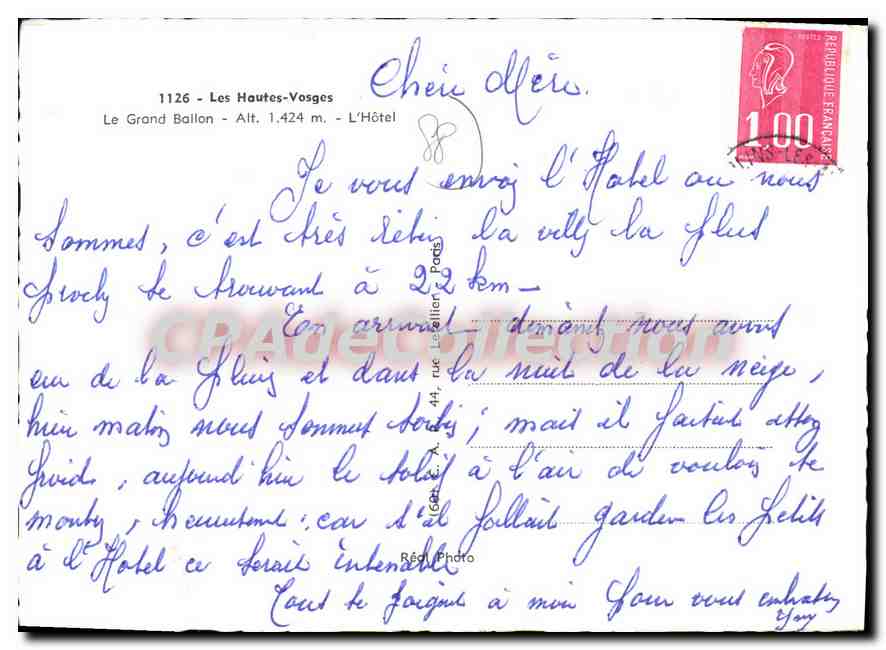 1126 - Les Hautes-Vosges
Le Grand Ballon - Alt. 1.424 m. - L'Hôtel
POSTES
REPUBLIQUE FRANÇAISE
1,00
Chère Mère.
88
Je vous envoy l'Hotel ou nous
sommes, c'est très la ville la plus
proche se trouvant à 22 km -
En arrivant dimanche nous avons
eu de la pluie et dans la nuit de la neige,
hier matin nous sommes sortis, mais il faisait assez
froid, aujourd'hui le soleil à l'air de vouloir se
montrer, heureusement, car s'il fallait garder les petits
à l'Hotel ce serait intenable
Tous se joignent à moi pour vous embrasser
44, rue Letellier, Paris
Réal Photo
CPAdeCollection